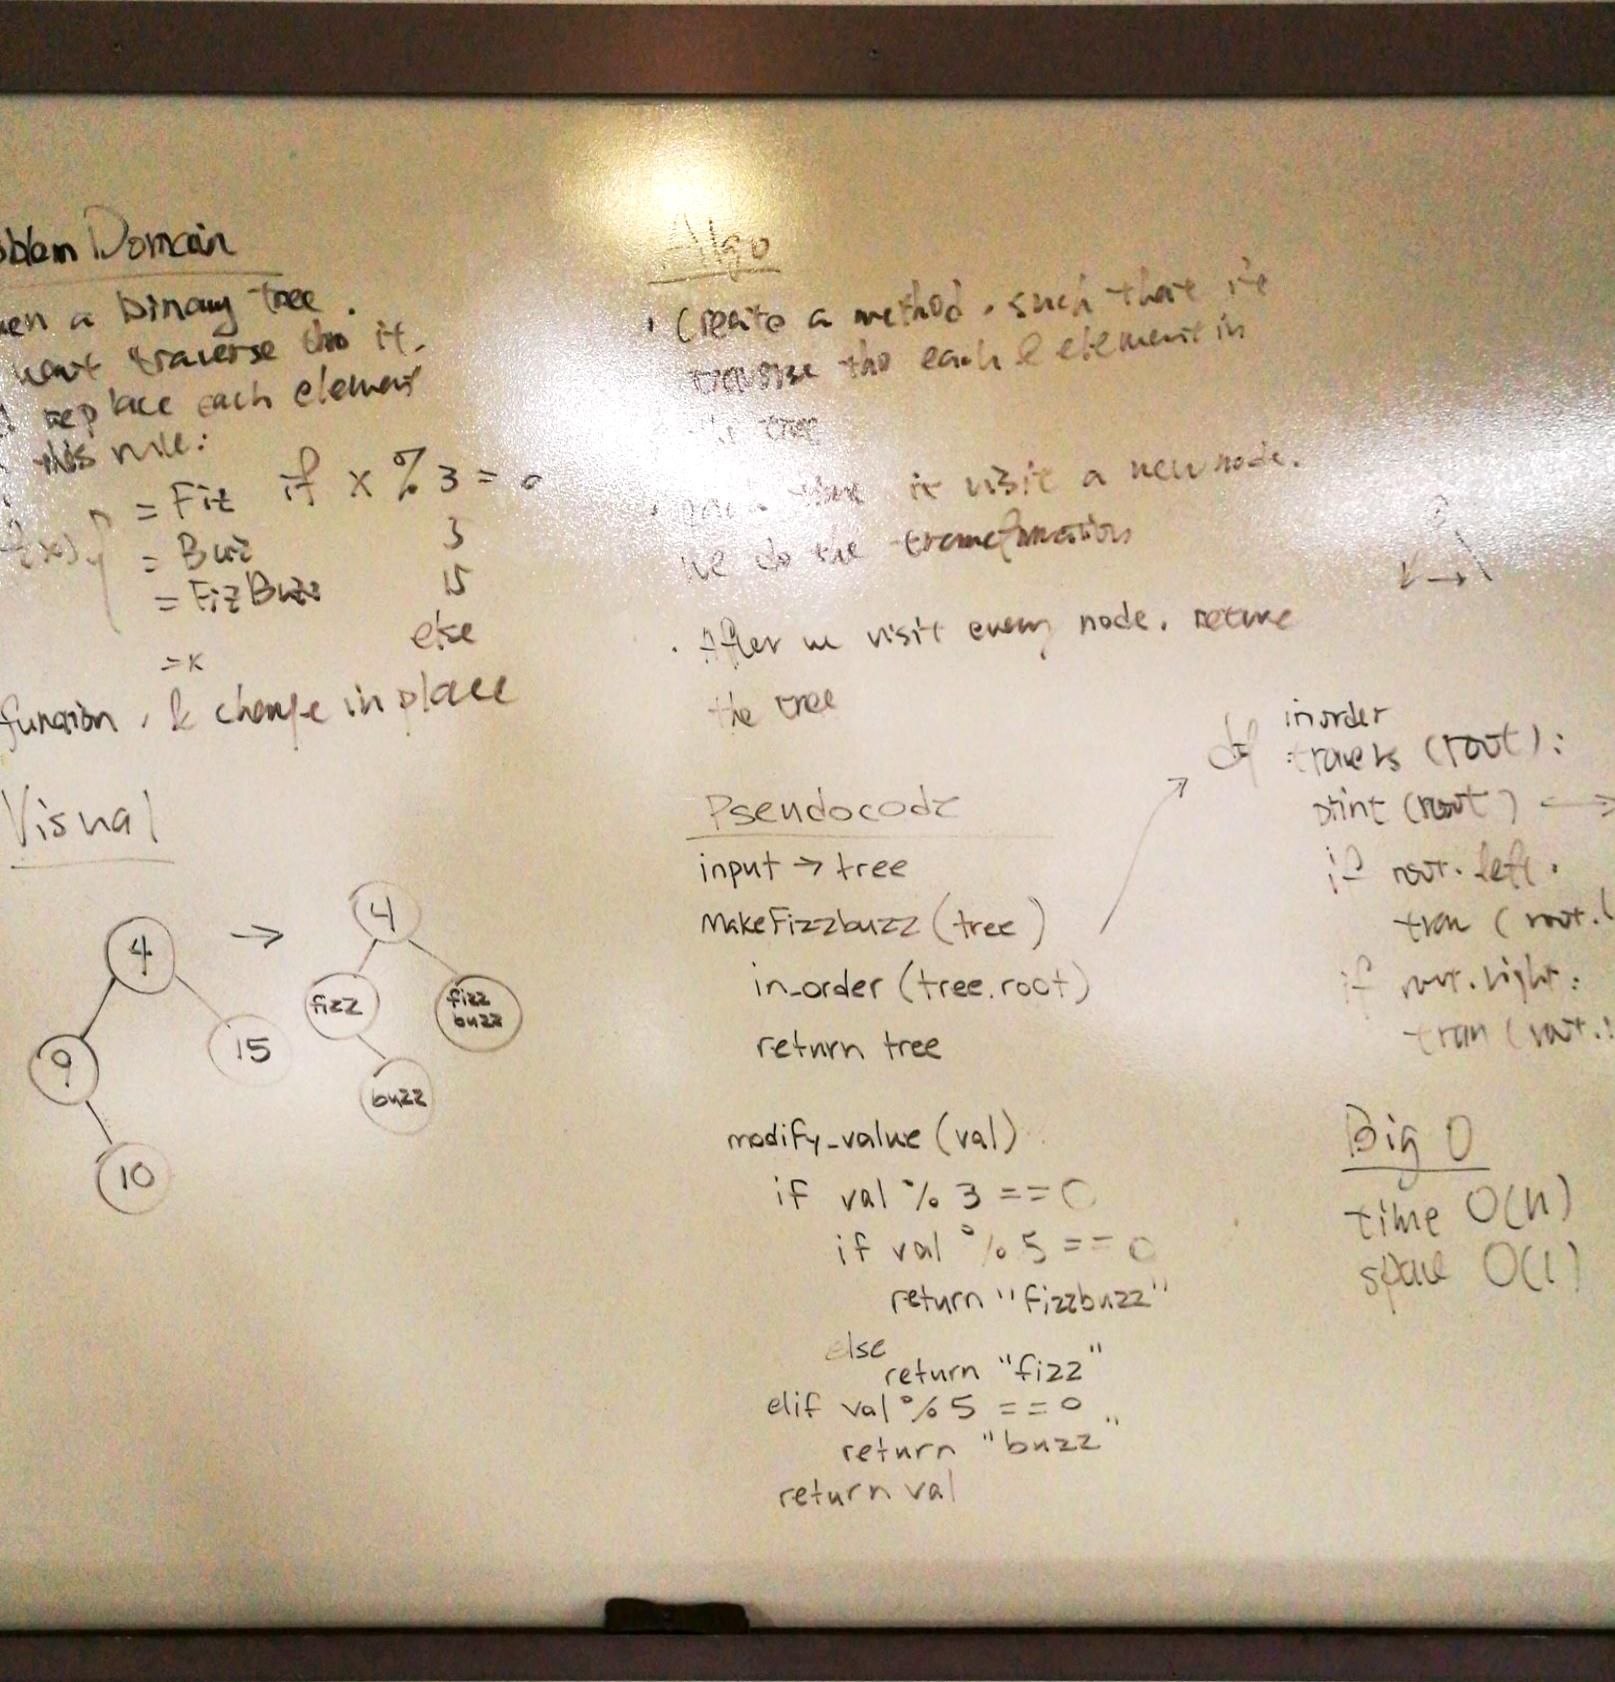 oblem Domain
en a binary tree.
want traverse tho it.
replace each element
this rule:
= Fiz if x % 3 = 0
f(x) = Buz 5
= FizBuzz 15
= x else
function, & change in place
Visual
4
9
15
10
→
4
fizz
fizz
buzz
buzz
Algo
· Create a method, such that it's
traverse tho each element in
the tree
· each time it visit a new node.
we do the transformation
· After we visit every node. return
the tree
Pseudocode
input → tree
MakeFizzbuzz (tree)
in_order (tree.root)
return tree
modify_value (val)
if val % 3 == 0
if val % 5 == 0
return "fizzbuzz"
else
return "fizz"
elif val % 5 == 0
return "buzz"
return val
inorder
def travers (root):
print (root) →
if root.left.
tran (root.l
if root.right:
tran (root.
Big O
time O(n)
space O(1)